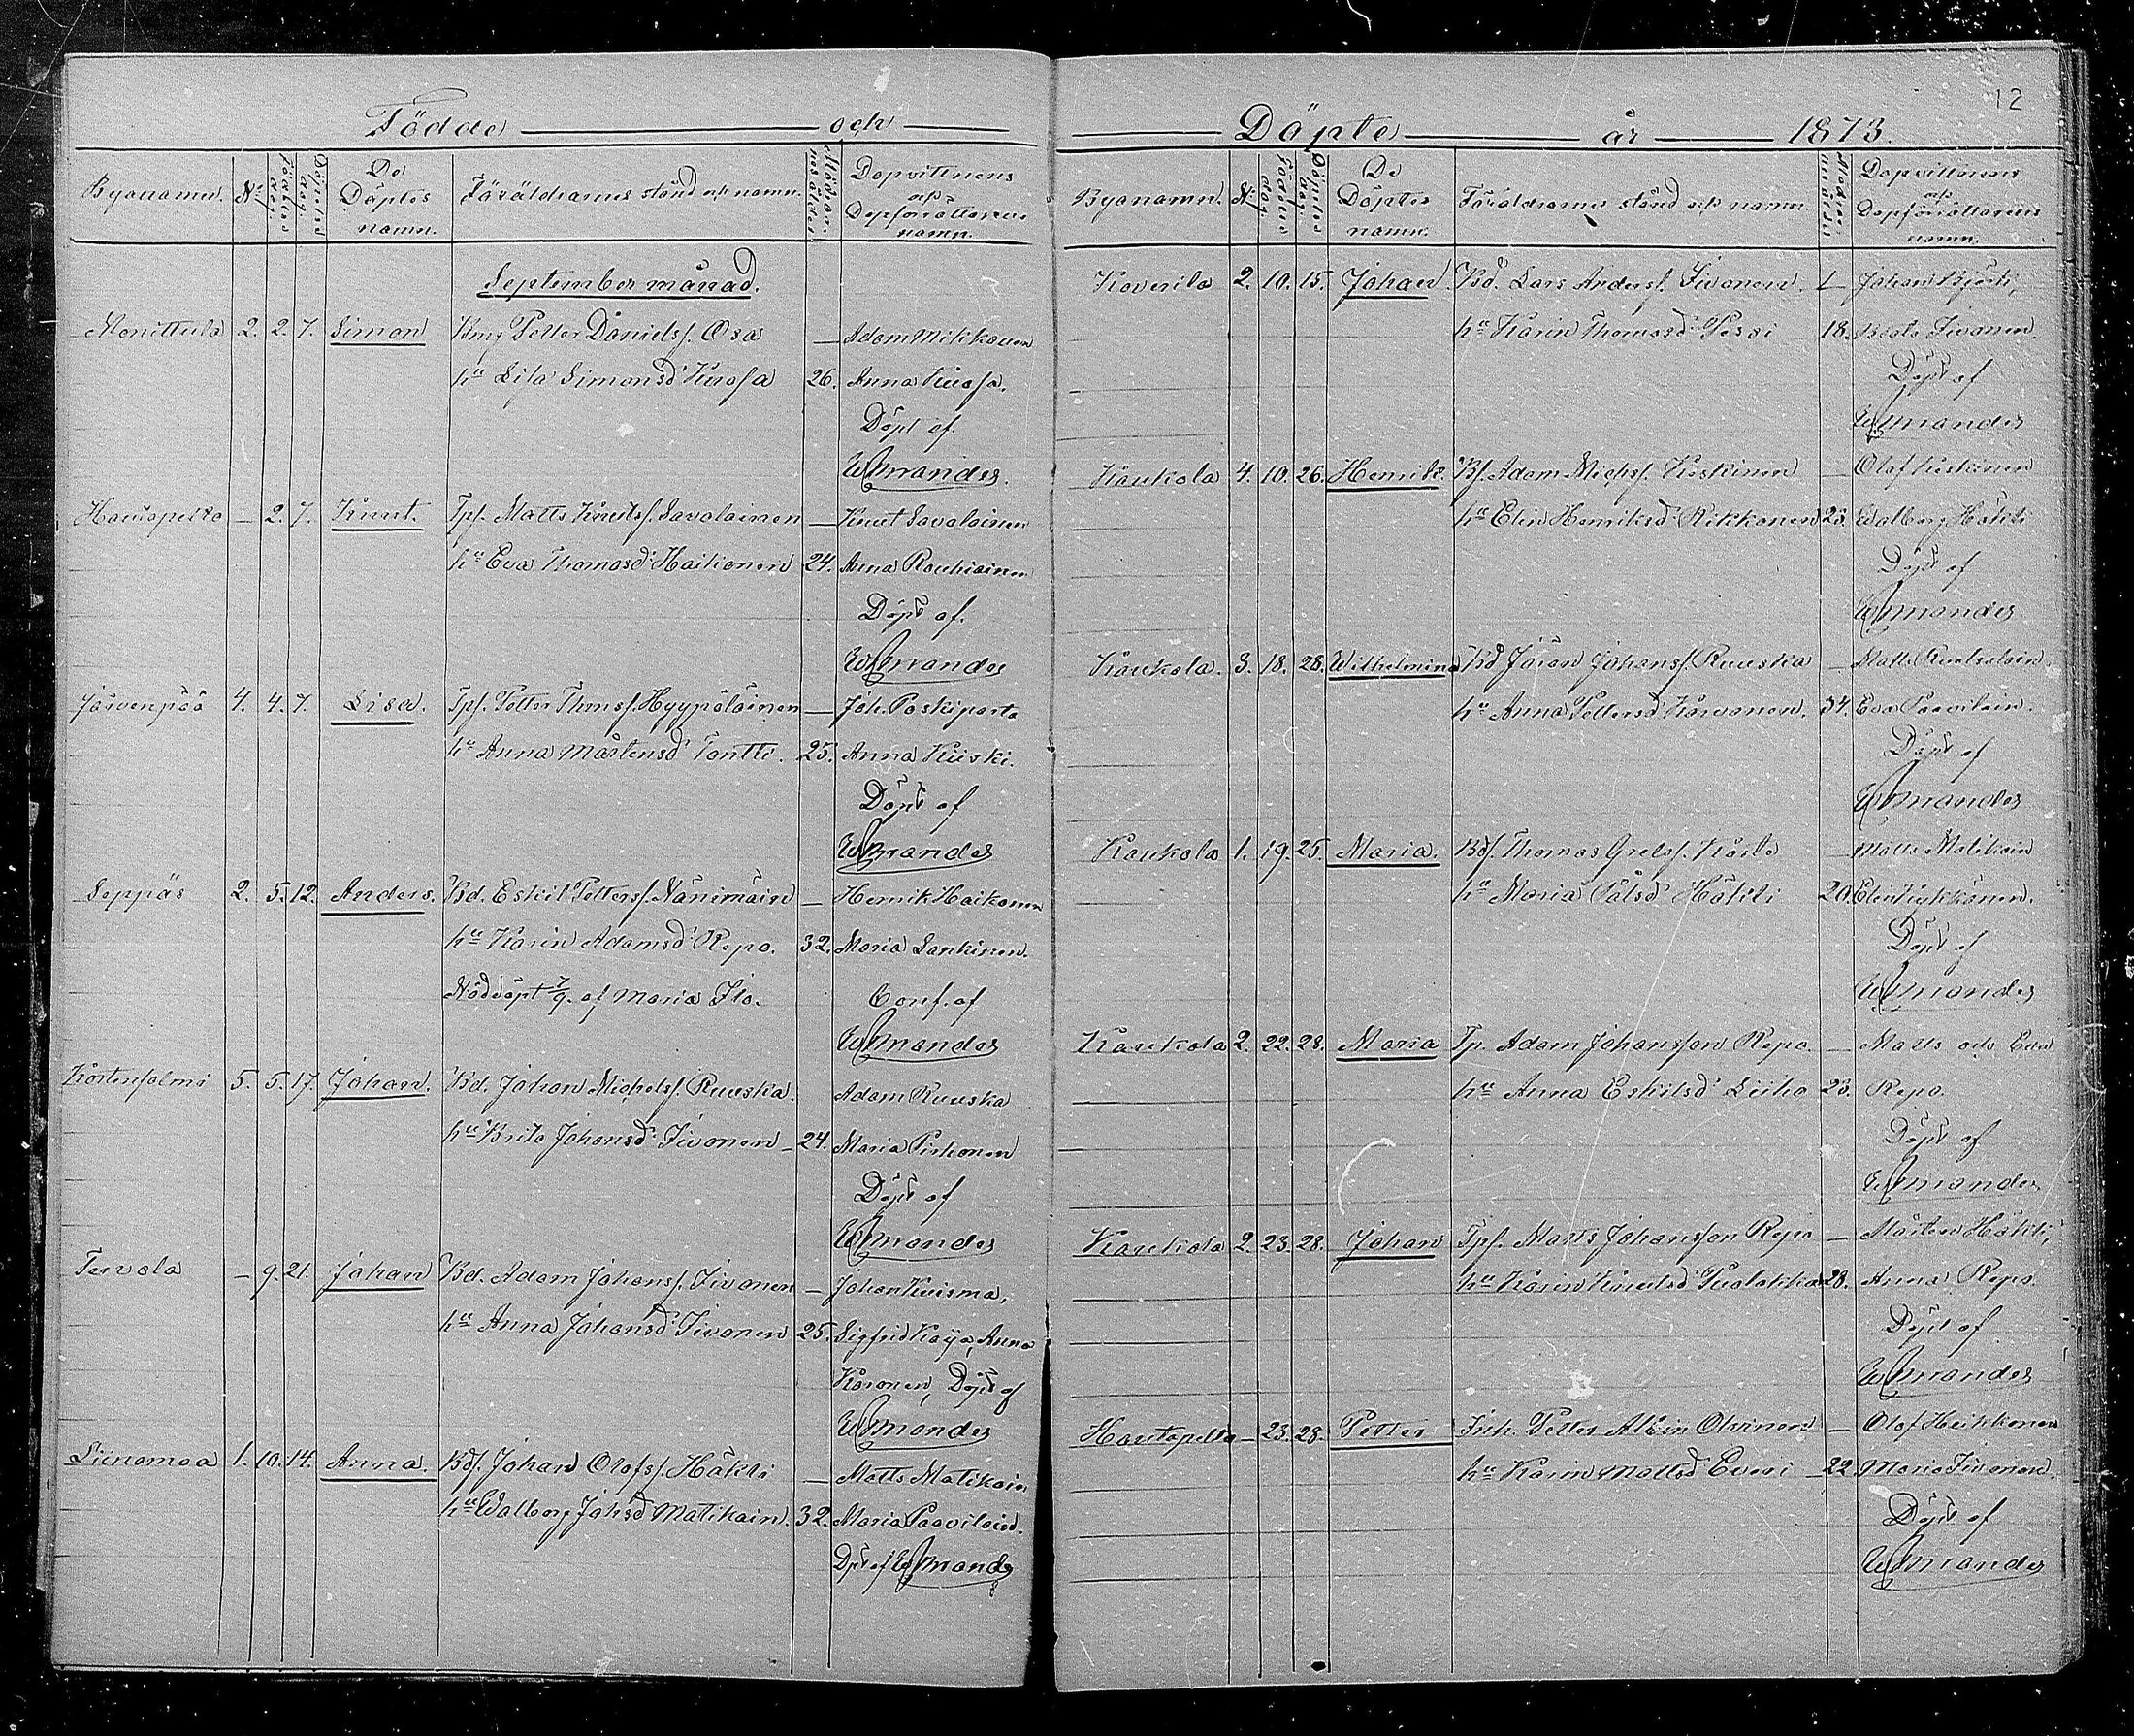 12
Födde och
Byanamn. No Födelse dag. Döpelse dag. De Döptes namn. Föräldrarnes stånd och namn. Modrens ålder Dopvittnens och Dopförrättarens namn.
September månad.
Monittula 2. 2. 7. Simon Bmg Petter Danielss. Osa — Adam Mikkonen
hu Lisa Simonsd. Kuosa 26. Anna Kuosa.
Döpt af.
Hautapelto — 2. 7. Knut. Tpf. Matts Knutss. Savolainen — Knut Savolainen
hu Eva Thomasd. Haikonen 24. Anna Rouhiainen
Döpt af.
Järvenpää 4. 4. 7. Lisa. Tpf. Petter Thomss. Hyypöläinen — Joh. Paskiparta
hu Anna Mårtensd. Tontti. 25. Anna Kiiski.
Döpt af
Seppäs 2. 5. 12. Anders. Bd. Eskil Petterss. Nänimäin — Henrik Haikonen
hu Karin Adamsd. Repo. 32. Maria Lankinen.
Nöddöpt 7/9. af Maria Ilo. Conf. af
Kortensalmi 5. 5. 17. Johan. Bd. Johan Michelss. Ruuska. Adam Ruuska
hu Brita Johansd. Sivonen — 24. Maria Pirhonen
Döpt af
Tervola — 9. 21. Johan Bd. Adam Johanss. Sivonen — Johan Kuisma,
hu Anna Johansd. Sivonen 25. Sigfrid Kaija, Anna
Koronen, Döpt af
Liinamaa 1. 10. 14. Anna. Bds. Johan Olofss. Häkli — Matts Matikain
hu Walborg Johsd Matikain. 32. Maria Paavilain.
Dpt af
Döpte år 1873.
Byanamn. No Födelse dag. Döpelse dag. De Döptes namn. Föräldrarnes stånd och namn. Modrens ålder Dopvittnens och Dopförrättarens namn.
Koverila 2. 10. 15. Johan Bd. Lars Anderss. Sivonen. — Johan
hu Karin Thomasd. Pesoi 18. Beata Sivonen.
Döpt af
Kaukola 4. 10. 26. Henrik. Bf. Adam Michss. Koskinen — Olof Koskinen
hu Elin Henriksd. Rikkonen 23. Walborg Häkli
Döpt af
Kaukola. 3. 18. 28. Wilhelmina Bd Johan Johanss. Ruuska — Matts
hu Anna Pettersd. Karvonen. 34. Eva Paavilain.
Döpt af
Kaukola 1. 19. 25. Maria. Bds. Thomas Grelss. — Matts Matikain
hu Maria Pålsd. Häkli 20. Elin
Döpt af
Kaukola 2. 22. 28. Maria Tp. Adam Johansson Repo. — Matts och Eva
hu Anna Eskilsd. Liiho 23. Repo.
Döpt af
Kaukola 2. 23. 28. Johan Tpf. Matts Johansson Repo — Mårten Häkli,
hu Karin Knutsd. 28. Anna Repo.
Döpt af
Hautapelto — 23. 28. Petter Inh. Petter — Olof Heikkonen
hu Karin Mattsd. Everi — 22. Maria Sivonen.
Döpt af